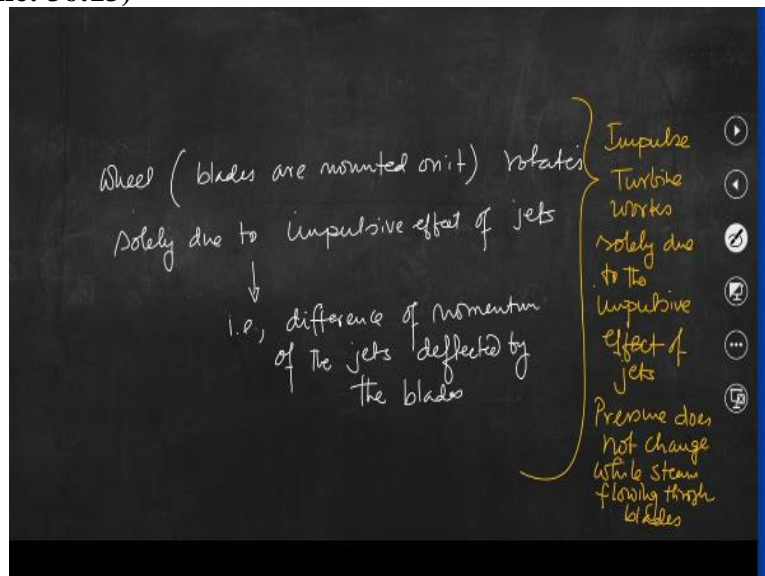 wheel ( blades are mounted on it ) rotates
solely due to impulsive effect of jets
i.e., difference of momentum
of the jets deflected by
the blades
Impulse
Turbine
works
solely due
to the
impulsive
effect of
jets
Pressure does
not change
while steam
flowing through
blades